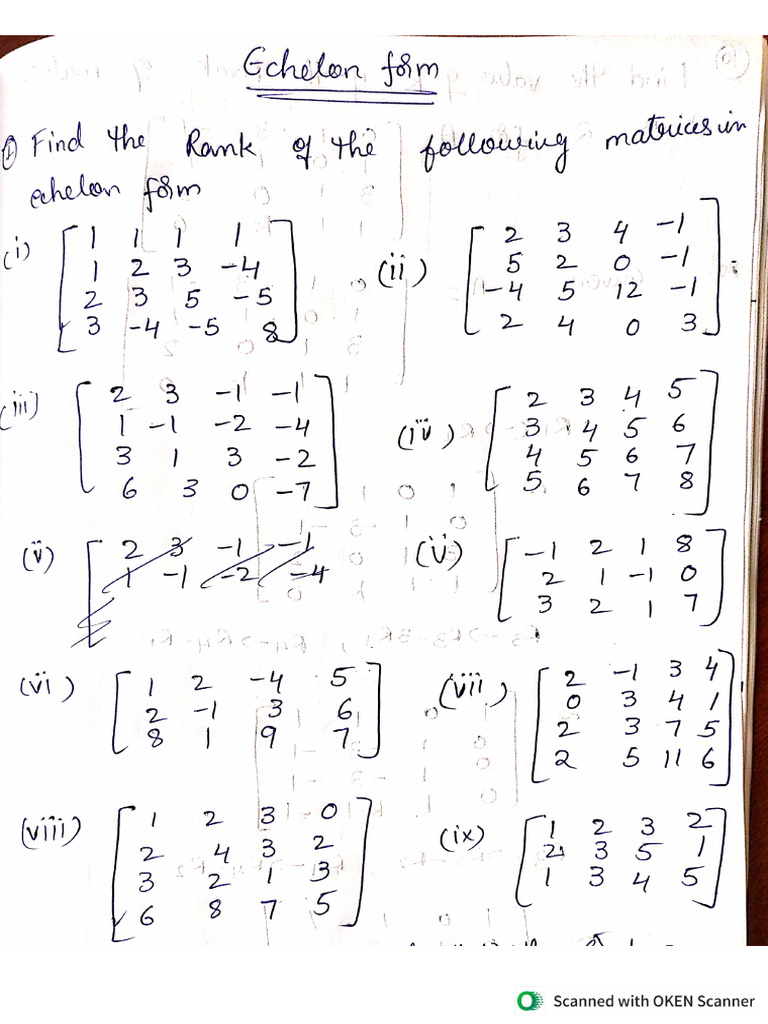 Echelon form
① Find the Rank of the following matrices in
echelon form
(i) [1 1 1 1
1 2 3 -4
2 3 5 -5
3 -4 -5 8]
(ii) [2 3 4 -1
5 2 0 -1
-4 5 12 -1
2 4 0 3]
(iii) [2 3 -1 -1
1 -1 -2 -4
3 1 3 -2
6 3 0 -7]
(iv) [2 3 4 5
3 4 5 6
4 5 6 7
5 6 7 8]
(v) [2 3 -1 -1
1 -1 -2 -4
(v) [-1 2 1 8
2 1 -1 0
3 2 1 7]
(vi) [1 2 -4 5
2 -1 3 6
8 1 9 7]
(vii) [2 -1 3 4
0 3 4 1
2 3 7 5
2 5 11 6]
(viii) [1 2 3 0
2 4 3 2
3 2 1 3
6 8 7 5]
(ix) [1 2 3 2
2 3 5 1
1 3 4 5]
Scanned with OKEN Scanner